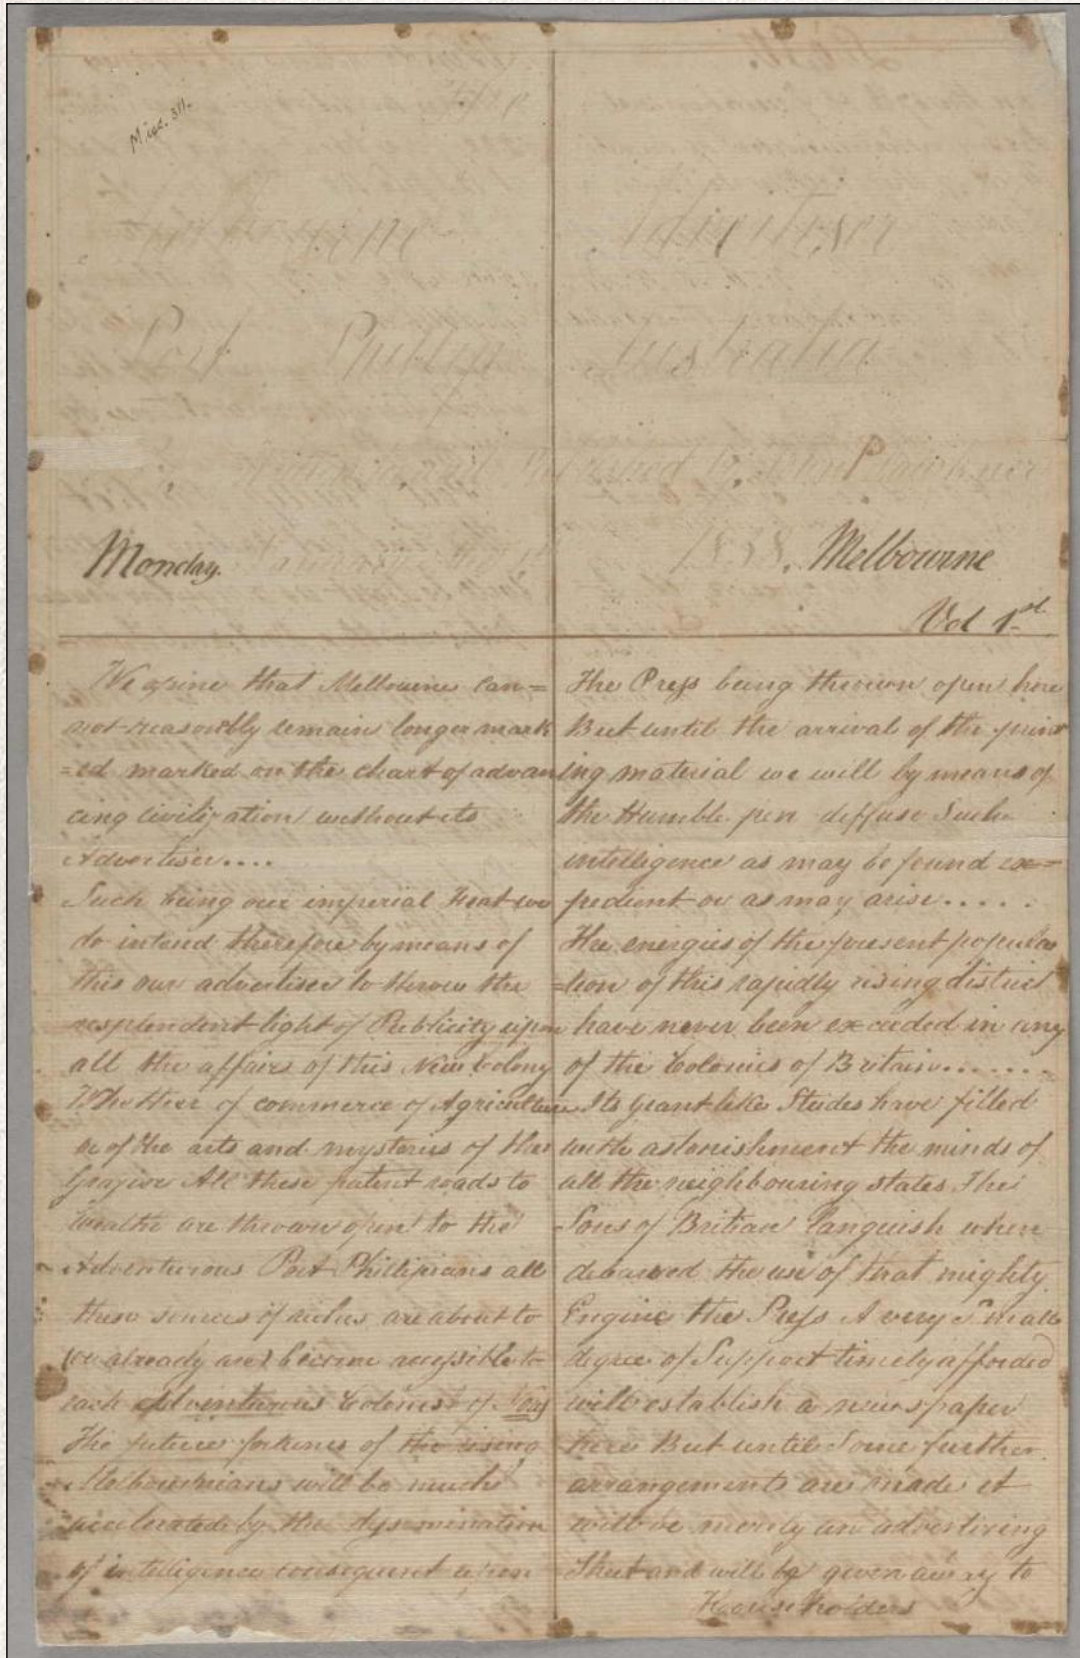 Misc. 311.
Melbourne Advertiser
Port Phillip Australia
Written and Published by John P Fawkner
Monday. January 1838, Melbourne
Vol 1st
We opine that Melbourne can=
not reasonably remain longer mark
=ed marked on the chart of advan
cing civilization without its
Advertiser....
Such being our imperial we
do intend therefore by means of
this our advertiser to throw the
resplendent light of Publicity upon
all the affairs of this New Colony
Whether of commerce of Agriculture
or of the arts and mysteries of the
Grazier All these patent roads to
wealth are thrown open to the
Adventurous Port Phillipians all
these sources of riches are about to
(or already are) become accessible to
each Adventurous Colonist of
The future fortunes of the rising
Melbournians will be much
accelerated by the dissemination
of intelligence consequent upon
The Press being thrown open here
But until the arrival of the print
ing material we will by means of
the Humble pen diffuse Such
intelligence as may be found ex=
pedient or as may arise.....
The energies of the present popula
=tion of this rapidly rising district
have never been exceeded in any
of the Colonies of Britain.......
Its giant like Strides have filled
with astonishment the minds of
all the neighbouring states The
Sons of Britian languish when
debarred the use of that mighty
Engine the Press A very Small
degree of Support timely afforded
will establish a newspaper
here But until Some further
arrangements are made it
will be merely an advertising
Sheet and will be given away to
Householders